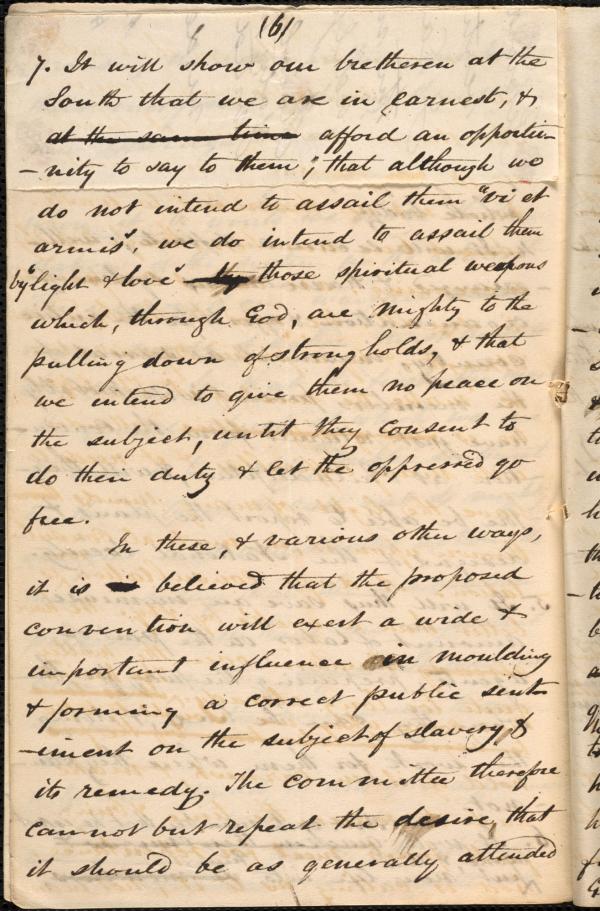 (6)
7. It will show our bretheren at the
South that we are in earnest, &
at the same time afford an opportu-
-nity to say to them, that although we
do not intend to assail them "vi et
armis", we do intend to assail them
by "light & love" those spiritual weapons
which, through God, are mighty to the
pulling down of strongholds, & that
we intend to give them no peace on
the subject, until they consent to
do their duty & let the oppressed go
free.
In these, & various other ways,
it is believed that the proposed
convention will exert a wide &
important influence in moulding
& forming a correct public sent-
-iment on the subject of slavery &
its remedy. The committee therefore
can not but repeat the desire, that
it should be as generally attended